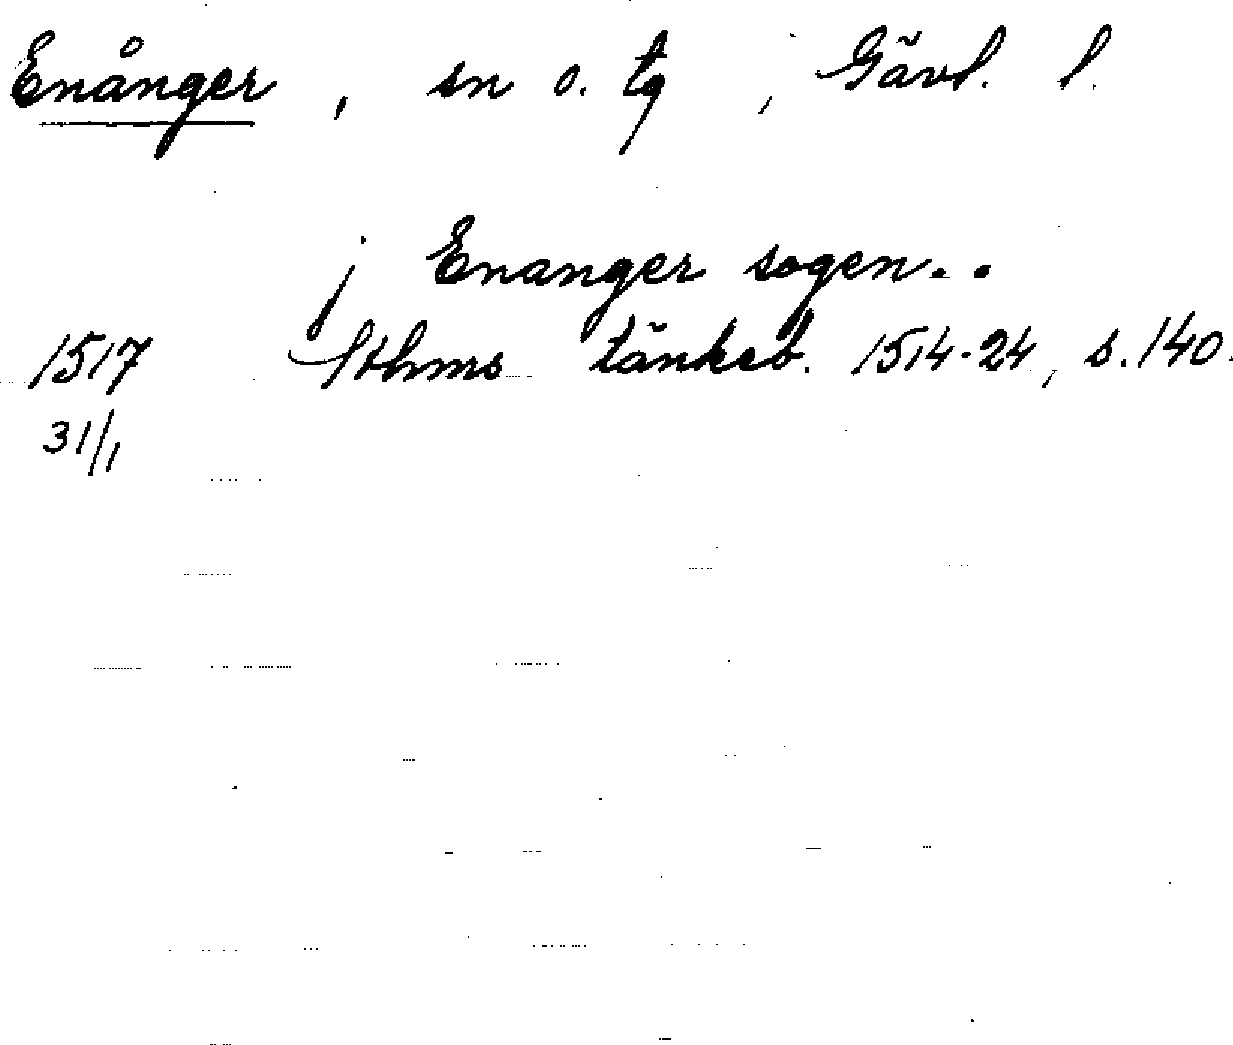 Enånger, sn o. tg, Gävl. l.
j Enanger sogen..
1517 Sthms tänkeb. 1514-24, s. 140.
31/1